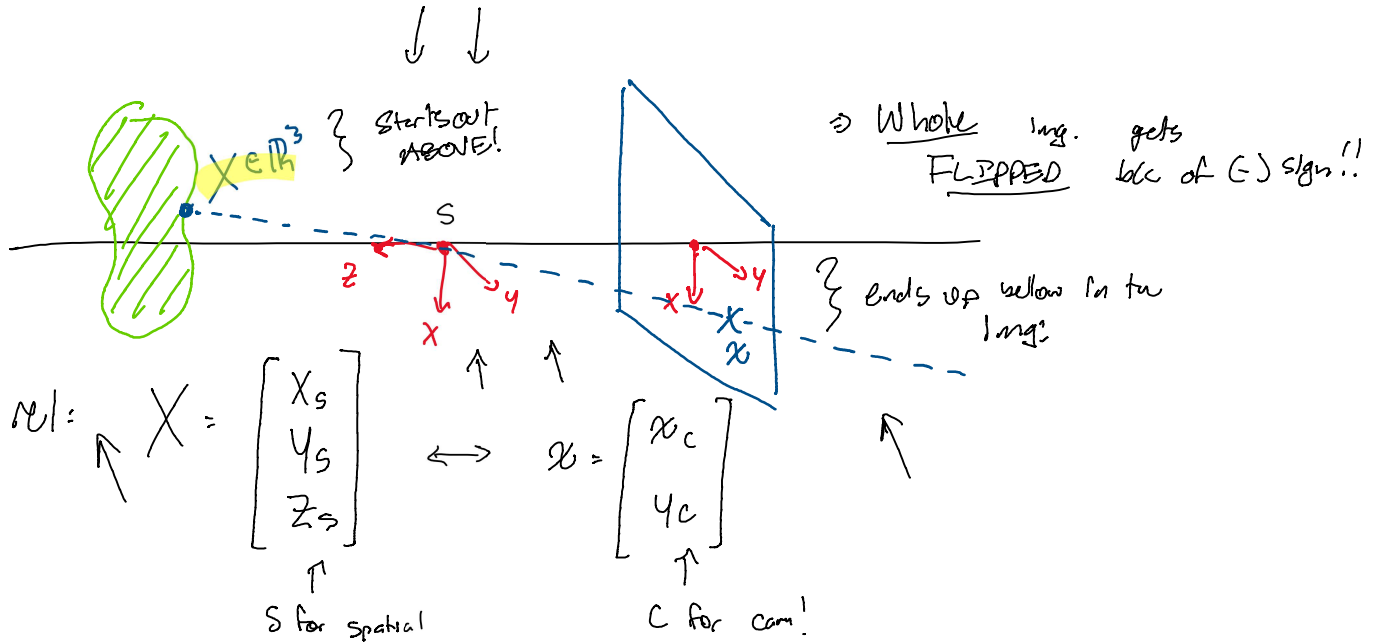 X ∈ ℝ³
} starts out
ABOVE!
⇒ Whole img. gets
FLIPPED b/c of (-) sign!!
S
Z
X
y
X
y
x
x
} ends up bellow in the
img:
rel:
X = [ Xs Ys Zs ] ↔ x = [ xc yc ]
S for spatial
C for cam!